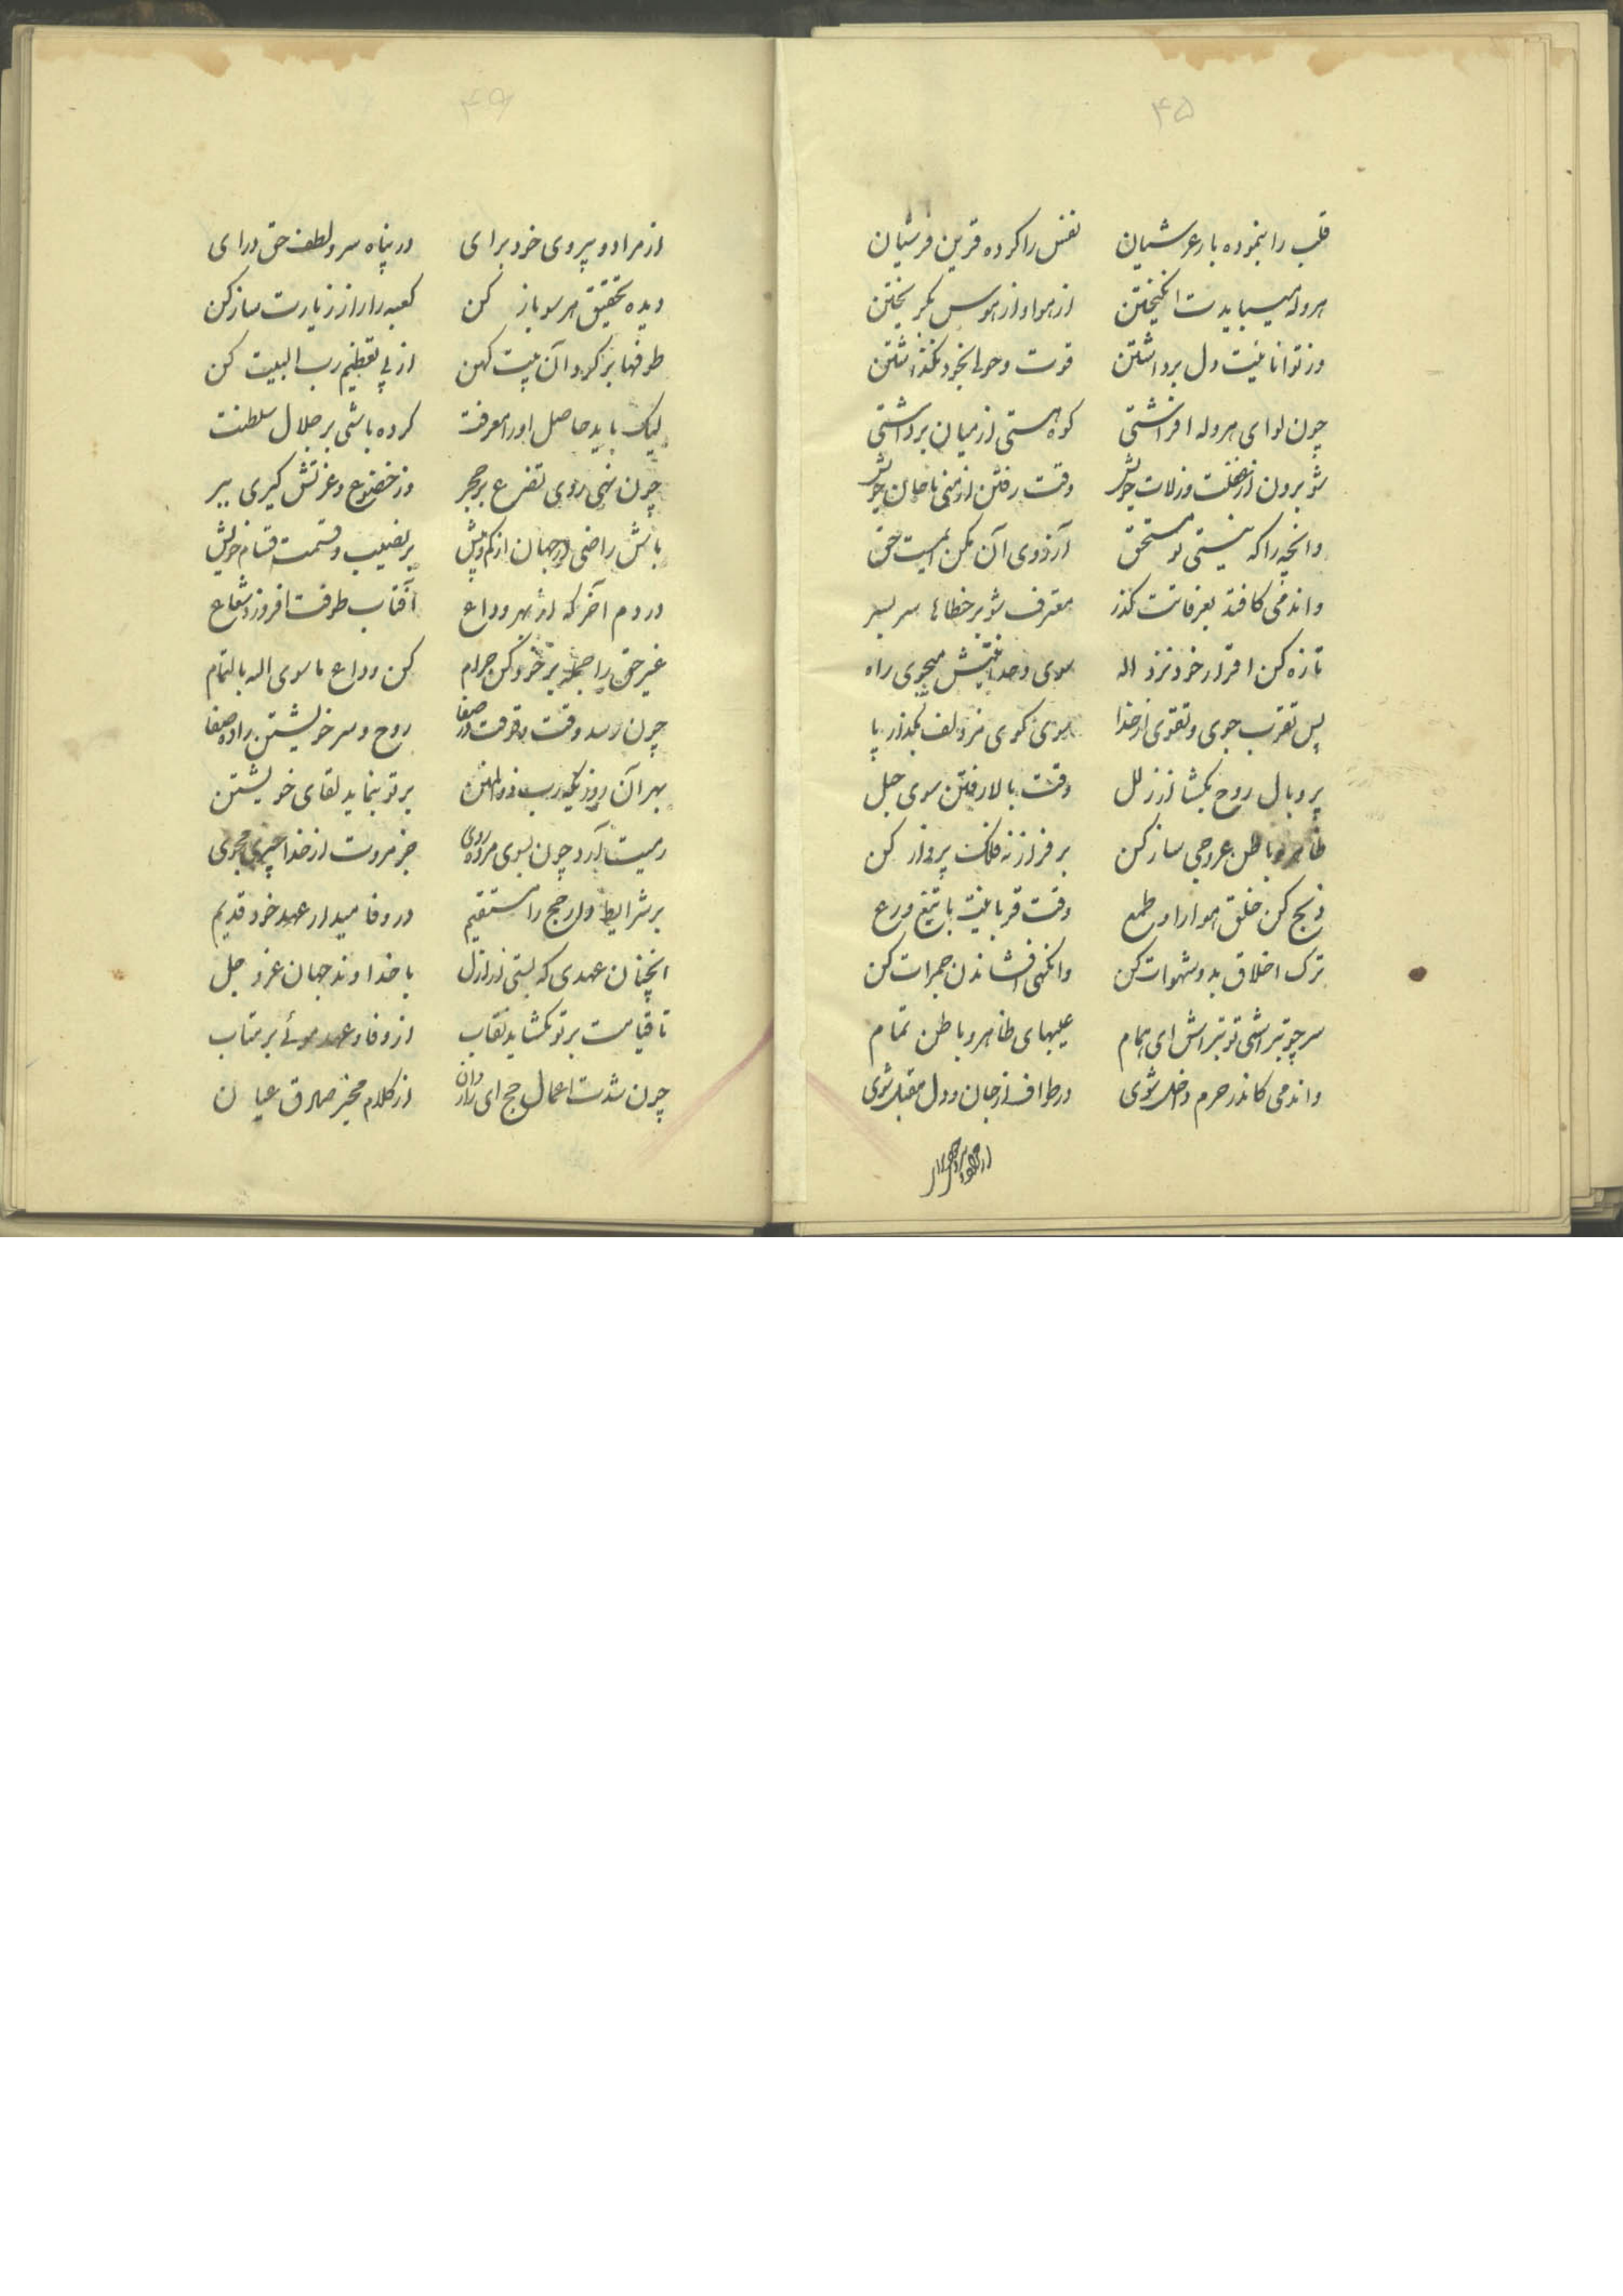 ۴۵
قلب را بنموده یار عرشیان نفس را کرده قرین فرشیان
هروله میبایدت انگیختن از هوا و از هوس بگریختن
وز توانائیت دل برداشتن قوت و حول بخود نگذاشتن
چون لوای هروله افراشتی کوه هستی از میان برداشتی
شو برون از غفلت و زلات خویش وقت رفتن از منی تا جان خویش
وانچه را که نیستی تو مستحق آرزوی آن مکن ز
واندمی کافتد بعرفاتت گذر معترف شو بر خطاها سر بسر
تازه کن اقرار خود نزد اله سوی وحدانیتش میجوی راه
پس تقرب جوی و تقوی از خدا سوی کوی مزدلف بگذار پا
پر و بال روح بگشا از زلل وقت بالا رفتن سوی جبل
ظاهر و باطن عروجی ساز کن بر فراز نه فلک پرواز کن
ذبح کن خلق هوا را و طمع وقت قربانیت با تیغ ورع
ترک اخلاق بد و شهوات کن وانگهی افشاندن جمرات کن
سر چو بتراشی تو بتراش ای همام عیبهای ظاهر و باطن تمام
واندمی کاندر حرم داخل شوی در طواف از جان و دل مقبل شوی
۴۶
از مراد و پیروی خود برای در پناه ستر و لطف حق درای
دیده تحقیق هر سو باز کن کعبه را از زیارت ساز کن
طوفها بر گرد آن بیت کهن از پی تعظیم رب البیت کن
لیک باید حاصل او را معرفت کرده باشی بر جلال سلطنت
چون نهی روی تضرع بر حجر وز خضوع و عزتش گیری ببر
باش راضی در جهان از کم و بیش بر نصیب و قسمت قسام خویش
در دم آخر که از بهر وداع آفتاب طوفت افروزد شعاع
غیر حق را جمله بر خود کن حرام کن وداع ما سوی الله بالتمام
چون رسد وقت وقوفت در صفا روح و سر خویشتن را ده صفا
بهر آن روزیکه رب ذوالمنن بر تو بنماید لقای خویشتن
رمیت آرد چون بسوی مروه روی جز مروت از خدا چیزی مجوی
بر شرایط دل حج را مستقیم در وفا میدار عهد خود قدیم
انچنان عهدی که بستی از ازل با خداوند جهان عز و جل
تا قیامت بر تو بگشاید نقاب از وفا و عهد موئی بر متاب
چون شدت اعمال حج ای رازدان از کلام مخبر صادق عیان